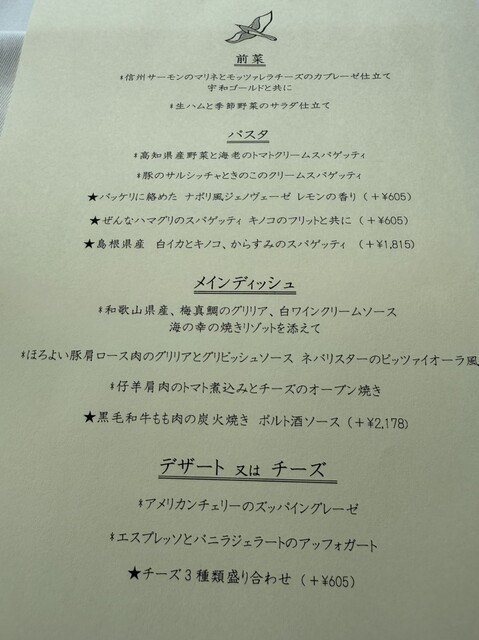 前菜
*信州サーモンのマリネとモッツァレラチーズのカプレーゼ仕立て
宇和ゴールドと共に
*生ハムと季節野菜のサラダ仕立て
パスタ
*高知県産野菜と海老のトマトクリームスパゲッティ
*豚のサルシッチャときのこのクリームスパゲッティ
★パッケリに絡めた ナポリ風ジェノヴェーゼ レモンの香り (+¥605)
★ぜんなハマグリのスパゲッティ キノコのフリットと共に (+¥605)
★島根県産 白イカとキノコ、からすみのスパゲッティ (+¥1,815)
メインディッシュ
*和歌山県産、梅真鯛のグリリア、白ワインクリームソース
海の幸の焼きリゾットを添えて
*ほろよい豚肩ロース肉のグリリアとグリビッシュソース ネバリスターのピッツァイオーラ風
*仔羊肩肉のトマト煮込みとチーズのオーブン焼き
★黒毛和牛もも肉の炭火焼き ポルト酒ソース (+¥2,178)
デザート 又は チーズ
*アメリカンチェリーのズッパイングレーゼ
*エスプレッソとバニラジェラートのアッフォガート
★チーズ3種類盛り合わせ (+¥605)